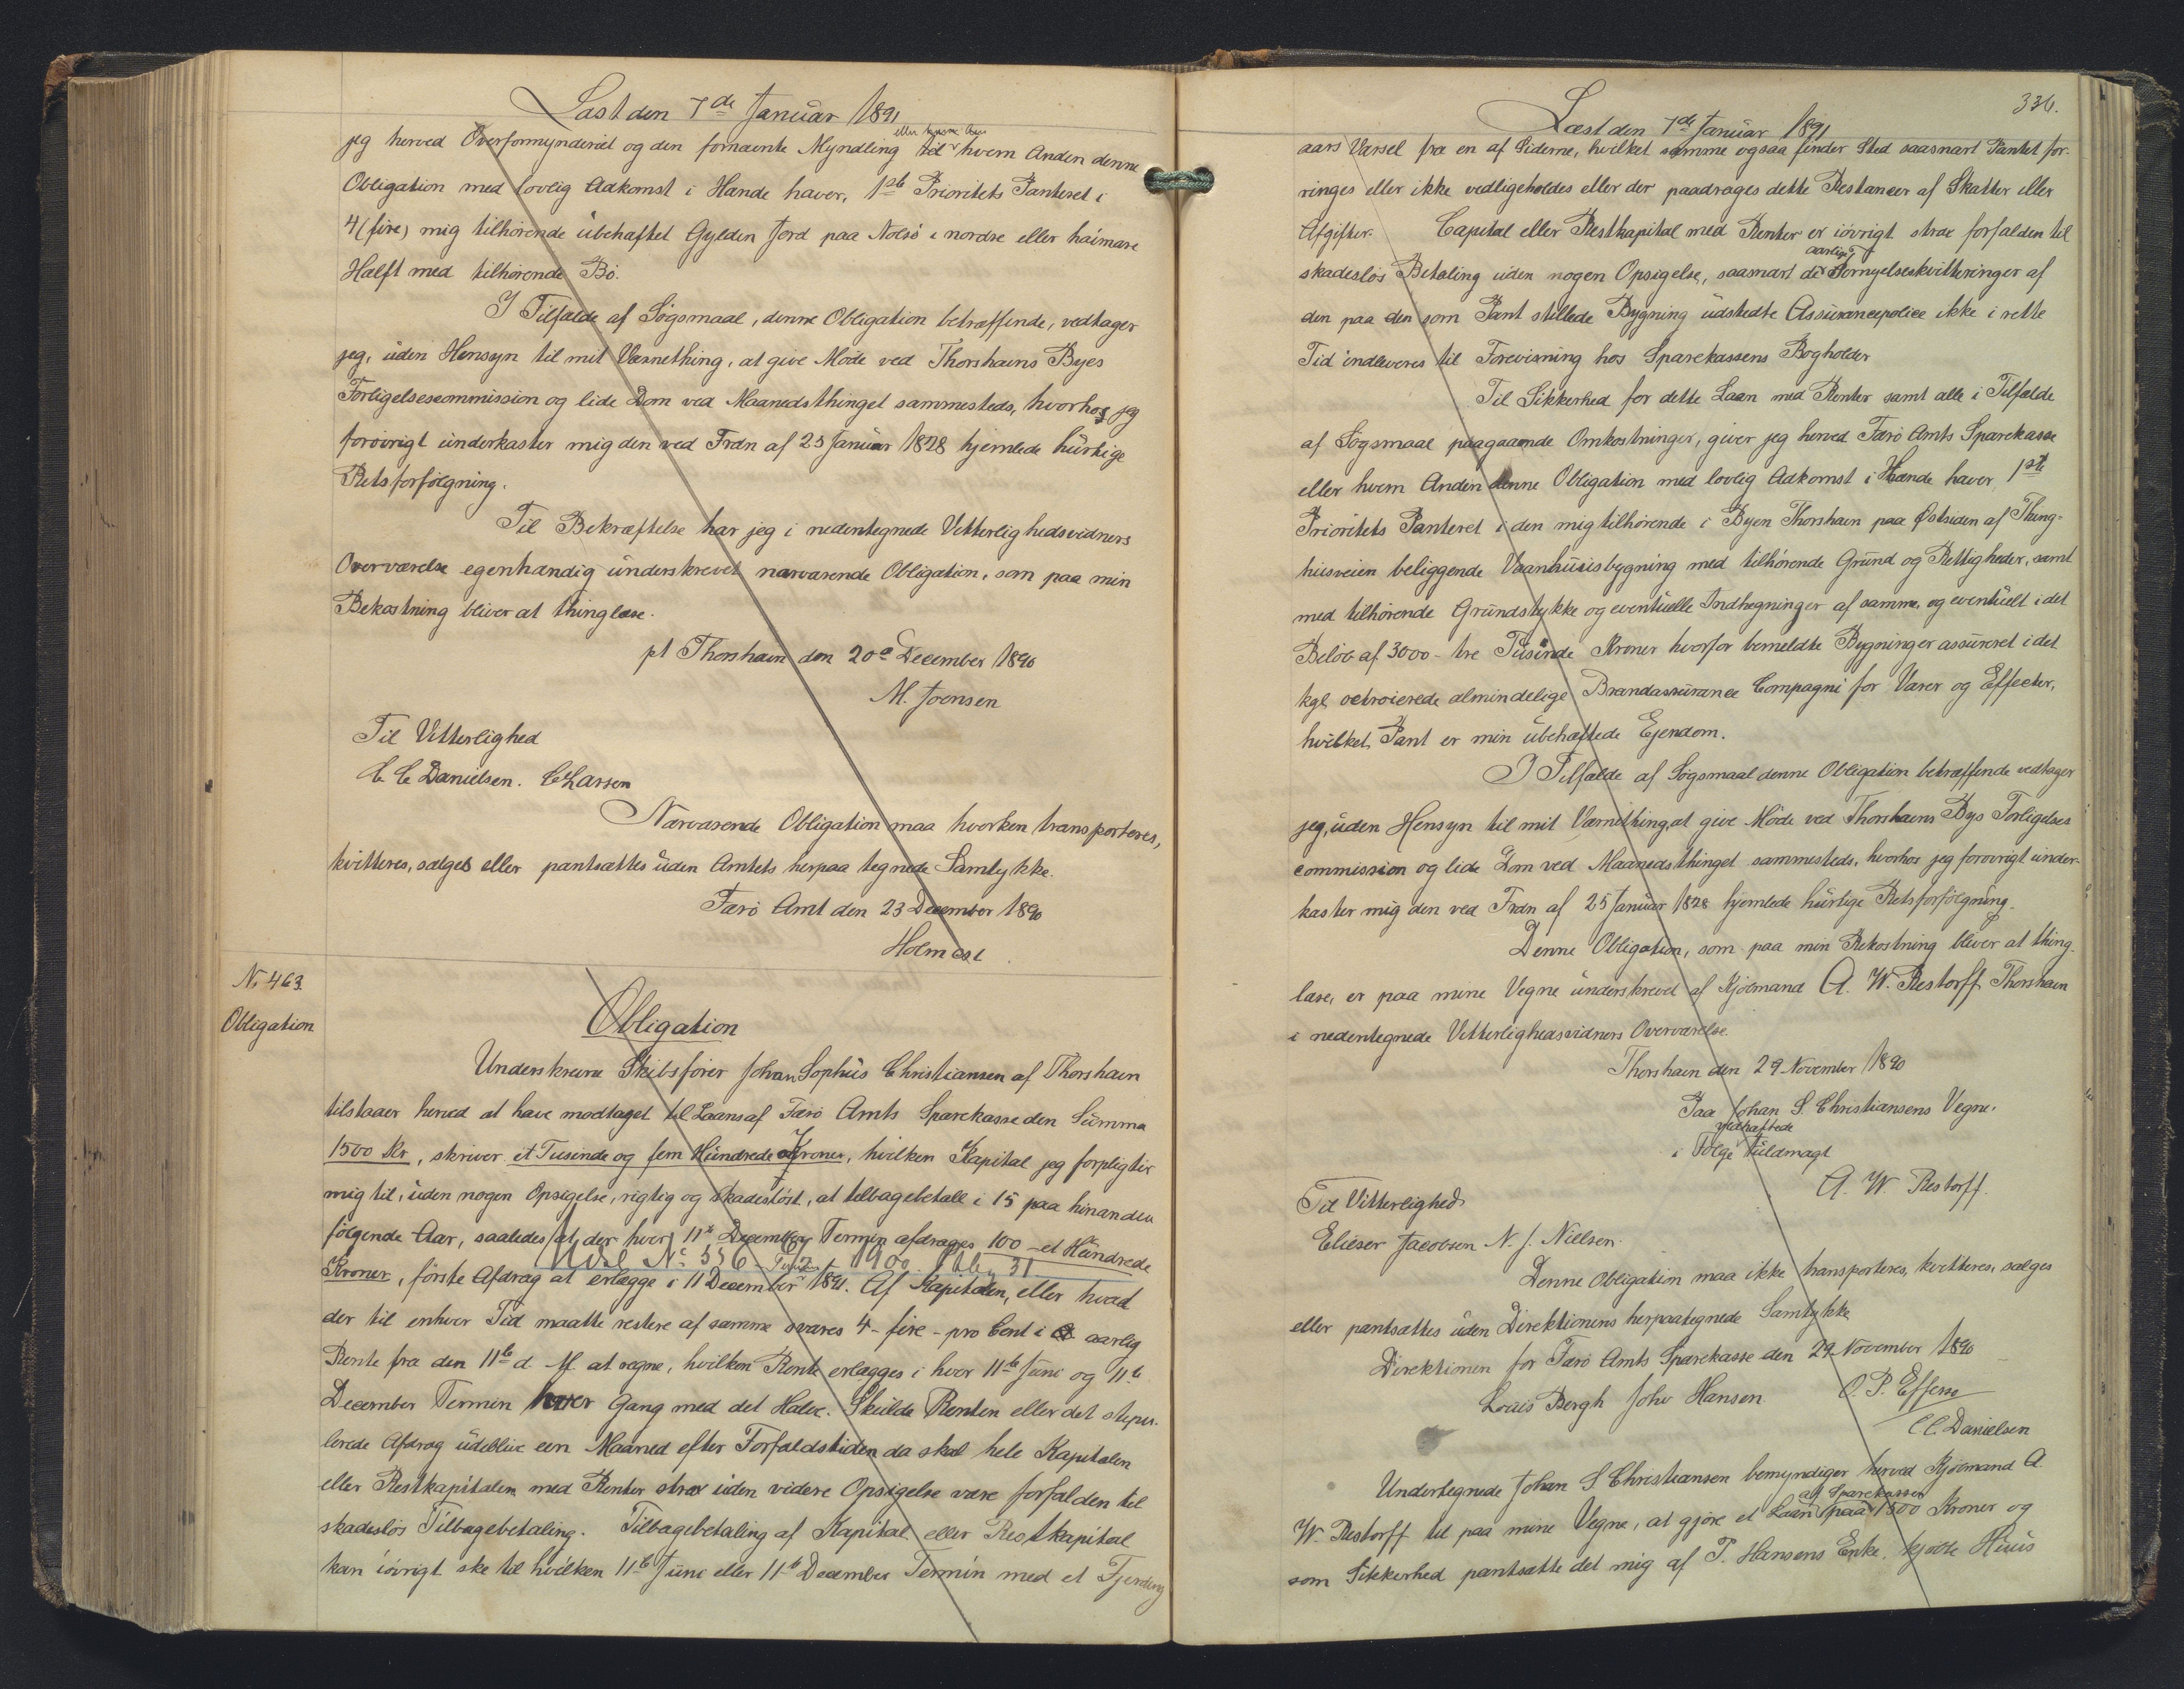 Læst den 7de Januar 1891
jeg herved Overformynderiet og den fornævnte Myndling til hvem Anden denne
Obligation med lovlig Adkomst i Hænde haver, 1ste Prioritets Panteret i
4 (fire) mig tilhørende übehæftet Gylden Jord paa Nolsø i nordre eller haimare
Hælft med tilhørende Bø.
I Tilfælde af Søgsmaal, denne Obligation betræffende, vedtager
jeg, uden Hensyn til mit Værnething, at give Møde ved Thorshavns Byes
Forligelsescommission og lide Dom ved Maanedsthinget sammesteds, hvorhos jeg
forøvrigt underkaster mig den ved Frdn af 25 Januar 1828 hjemlede hurtige
Retsforfølgning.
Til Bekræftelse har jeg i nedentegnede Vitterlighedsvidners
Overværelse egenhændig underskrevet nærværende Obligation, som paa min
Bekostning bliver at thinglæse.
pt Thorshavn den 20de December 1890
M. Joensen
Til Vitterlighed
C C Danielsen. C Larsen
Nærværende Obligation maa hverken transporteres,
kvitteres, sælges eller pantsættes uden Amtets herpaa tegnede Samtykke.
Færø Amt den 23 December 1890
Holm cst
No 463.
Obligation
Obligation
Underskrevne Skibsfører Johan Sophus Christiansen af Thorshavn
tilstaaer herved at have modtaget til Laans af Færø Amts Sparekasse den Summa
1500 Kr, skriver et Tusinde og fem Hundrede Kroner, hvilken Kapital jeg forpligter
mig til, uden nogen Opsigelse, rigtig og skadesløst, at tilbagebetale i 15 paa hinanden
følgende Aar, saaledes at der hver 11te December Termin afdrages 100 - et Hundrede
Udsl No 536 1900 31
Kroner, første Afdrag at erlægge i 11 December 1891. Af Kapitalen, eller hvad
der til enhver Tid maatte restere af samme svares 4 - fire - pro Cent i aarlig
Rente fra den 11te d. M. at regne, hvilken Rente erlægges i hver 11te Juni og 11te
December Termin hver Gang med det Halve. Skulde Renten eller det stipu-
lerede Afdrag udeblive een Maaned efter Forfaldstiden da skal hele Kapitalen
eller Restkapitalen med Renter strax uden videre Opsigelse være forfalden til
skadesløs Tilbagebetaling. Tilbagebetaling af Kapital eller Restkapital
kan iøvrigt ske til hvilken 11te Juni eller 11te December Termin med et Fjerding
336.
Læst den 7de Januar 1891
aars Varsel fra en af Siderne, hvilket samme ogsaa finder Sted saasnart Pantet for-
ringes eller ikke vedligeholdes eller der paadrages dette Restancer af Skatter eller
Afgifter. Capital eller Restkapital med Renter er iøvrigt strax forfalden til
aarlige
skadesløs Betaling uden nogen Opsigelse, saasnart de Fornyelseskvitteringer af
den paa den som Pant stillede Bygning udstedte Assurancepolice ikke i rette
Tid indleveres til Forevisning hos Sparekassens Bogholder
Til Sikkerhed for dette Laan med Renter samt alle i Tilfælde
af Søgsmaal paagaaende Omkostninger, giver jeg herved Færø Amts Sparekasse
eller hvem Anden denne Obligation med lovlig Adkomst i Hænde haver, 1ste
Prioritets Panteret i den mig tilhørende i Byen Thorshavn paa Østsiden af Thing-
husveien beliggende Vaanhuusbygning med tilhørende Grund og Rettigheder, samt
med tilhørende Grundstykke og eventuelle Indhegninger af samme, og eventuelt i det
Beløb af 3000 - tre Tusinde Kroner hvorfor bemeldte Bygninger assureret i det
kgl. octroierede almindelige Brandassurance Compagni for Varer og Effecter,
hvilket Pant er min übehæftede Ejendom.
I Tilfælde af Søgsmaal denne Obligation betræffende vedtager
jeg, uden Hensyn til mit Værnething, at give Møde ved Thorshavns Bys Forligelses
commission og lide Dom ved Maanedsthinget sammesteds, hvorhos jeg forøvrigt under-
kaster mig den ved Frdn af 25 Januar 1828 hjemlede hurtige Retsforfølgning.
Denne Obligation, som paa min Bekostning bliver at thing-
læse, er paa mine Vegne underskrevet af Kjøbmand A. W. Restorff Thorshavn
i nedentegnede Vitterlighedsvidners Overværelse.
Thorshavn den 29 November 1890
Paa Johan S. Christiansens Vegne.
vedhæftede
i Følge Fuldmagt
A. W. Restorff.
Til Vitterlighed
Elieser Jacobsen N. J. Nielsen.
Denne Obligation maa ikke transporteres, kvitteres, sælges
eller pantsættes uden Direktionens herpaategnede Samtykke
Direktionen for Færø Amts Sparekasse den 29 November 1890
Louis Bergh John Hansen O. P. Effersø
C C. Danielsen
Undertegnede Johan S Christiansen bemyndiger herved Kjøbmand A.
af Sparekassen
W. Restorff til paa mine Vegne, at gjøre et Laan paa 1500 Kroner og
som Sikkerhed pantsætte det mig af P. Hansens Enke. kjøbte Huus